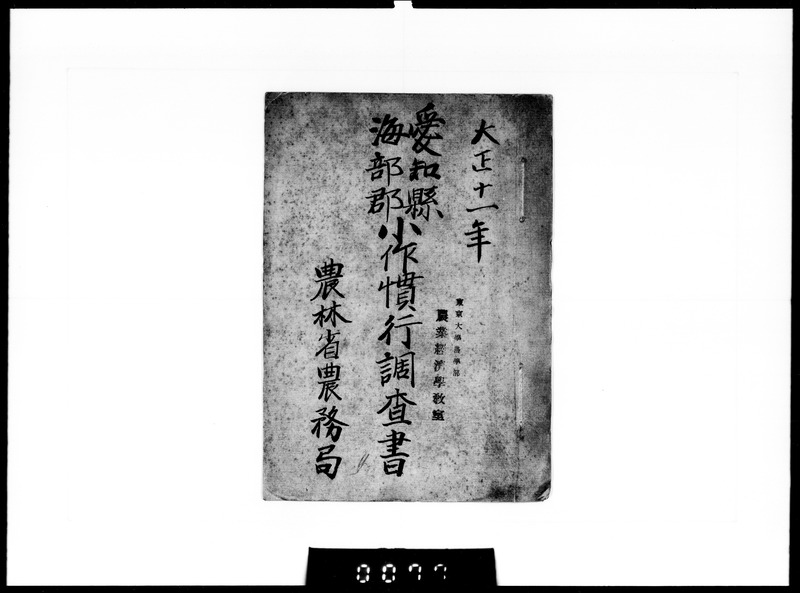 大正十一年
愛知縣
海部郡
小作慣行調査書
東京大學農學部
農業経済學教室
農林省農務局
0077